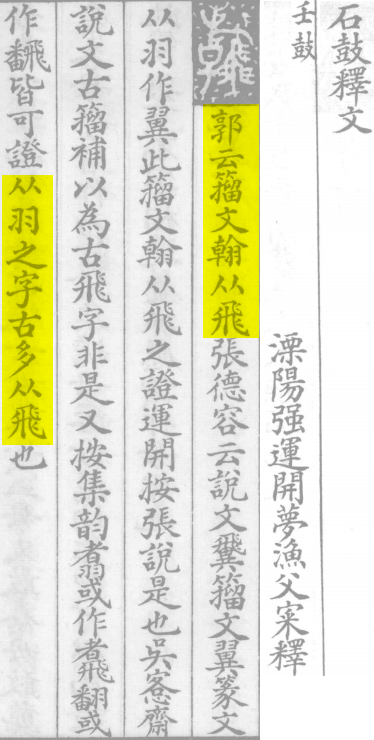 石鼓釋文
壬鼓
溧陽强運開夢漁父寀釋
郭云籀文翰从飛張德容云說文䨴籀文翼篆文
从羽作翼此籀文翰从飛之證運開按張說是也吳愙齋
說文古籀補以為古飛字非是又按集韵翥或作䬡翻或
作飜皆可證从羽之字古多从飛也